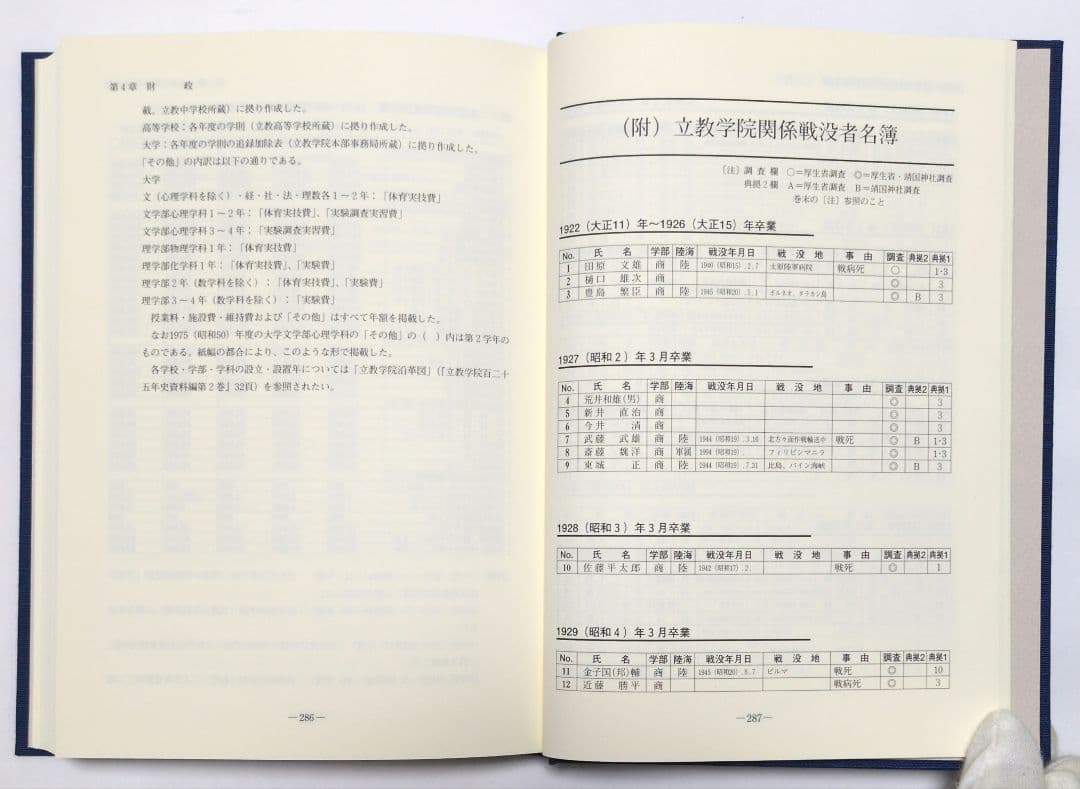 第4章 財 政
載、立教中学校所蔵）に拠り作成した。
高等学校：各年度の学則（立教高等学校所蔵）に拠り作成した。
大学：各年度の学則の追録加除表（立教学院本部事務局所蔵）に拠り作成した。
「その他」の内訳は以下の通りである。
大学
文（心理学科を除く）・経・社・法・理数各1～2年：「体育実技費」
文学部心理学科1～2年：「体育実技費」、「実験調査実習費」
文学部心理学科3～4年：「実験調査実習費」
理学部物理学科1年：「体育実技費」
理学部化学科1年：「体育実技費」、「実験費」
理学部2年（数学科を除く）：「体育実技費」、「実験費」
理学部3～4年（数学科を除く）：「実験費」
授業料・施設費・維持費および「その他」はすべて年額を掲載した。
なお1975（昭和50）年度の大学文学部心理学科の「その他」の（ ）内は第2学年の
ものである。紙幅の都合により、このような形で掲載した。
各学校・学部・学科の設立・設置年については「立教学院沿革図」（『立教学院百二十
五年史資料編第2巻』32頁）を参照されたい。
―286―
（附）立教学院関係戦没者名簿
〔注〕調査欄 ○＝厚生省調査 ◎＝厚生省・靖国神社調査
典拠2欄 A＝厚生省調査 B＝靖国神社調査
巻末の〔注〕参照のこと
1922（大正11）年～1926（大正15）年卒業
No. 氏 名 学部 陸海 戦没年月日 戦没地 事由 調査 典拠2 典拠1
1 田原 文雄 商 陸 1940（昭和15）.2.7 太原陸軍病院 戦病死 ○ 1·3
2 樋口 雄次 商 ◎ 3
3 豊島 繁臣 商 陸 1945（昭和20）.5.1 ボルネオ、タラカン島 ◎ B 3
1927（昭和2）年3月卒業
No. 氏 名 学部 陸海 戦没年月日 戦没地 事由 調査 典拠2 典拠1
4 荒井和雄(男) 商 ◎ 3
5 新井 直治 商 ◎ 3
6 今井 清 商 ◎ 3
7 武藤 武雄 商 陸 1944（昭和19）.3.16 北方々面作戦輸送中 戦死 ◎ B 1·3
8 斎藤 魏洋 商 軍属 1994（昭和19）. フィリピンマニラ ◎ 1·3
9 東城 正 商 陸 1944（昭和19）.7.31 比島、バイン海峡 ◎ B 3
1928（昭和3）年3月卒業
No. 氏 名 学部 陸海 戦没年月日 戦没地 事由 調査 典拠2 典拠1
10 佐藤平太郎 商 陸 1942（昭和17）.2. 戦死 ◎ 1
1929（昭和4）年3月卒業
No. 氏 名 学部 陸海 戦没年月日 戦没地 事由 調査 典拠2 典拠1
11 金子国(邦)輔 商 陸 1945（昭和20）.6.7 ビルマ 戦死 ◎ 10
12 近藤 勝平 商 戦病死 ◎ 3
―287―